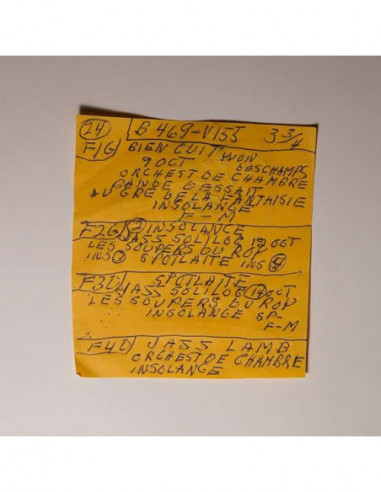 24 B 469-V155 3 3/4
F1G BIEN CUIT YVON
9 OCT DESCHAMPS
ORCHEST DE CHAMBRE
BANDE D ESSAIT
AU GRE DE LA FANTAISIE
INSOLANGE
F-M
F2G INSOLANGE
JASS SOLILOQ 19 OCT
LES SOUPERS DU ROY
INS SPOTLAITE INS
F3D SPOTLAITE
JASS SOLILOQ 19 OCT
LES SOUPERS DU ROY
INSOLANGE SP-
F-M
F4D JASS LAMB
ORCHEST DE CHAMBRE
INSOLANGE